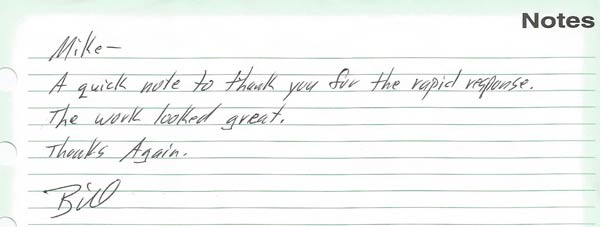 Notes
Mike—
A quick note to thank you for the rapid response.
The work looked great.
Thanks Again.
Bill